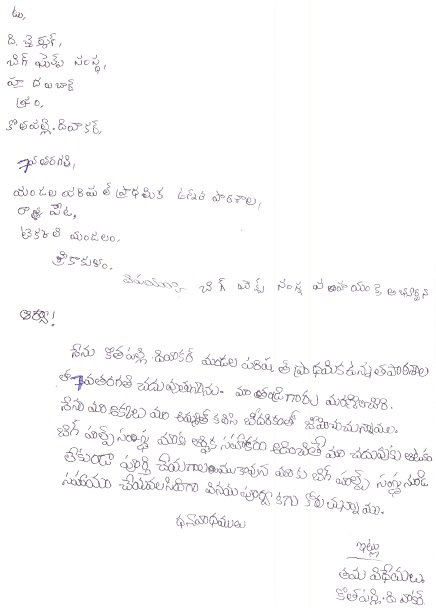 టు,
ది. డైరెక్టర్,
బిగ్ హెల్ప్ సంస్థ,
హైదరాబాద్
ఫ్రం,
కొతపల్లి. దివాకర్,
7వ తరగతి,
మండల పరిషత్ ప్రాథమిక ఉన్నత పాఠశాల,
పేట,
టెక్కలి మండలం.
శ్రీకాకుళం.
బిగ్ హెల్ప్ సంస్థ సహాయంకై అభ్యర్థన
ఆర్యా!
నేను కొతపల్లి దివాకర్ మండల పరిషత్ ప్రాథమిక ఉన్నత పాఠశాల
లో 7వతరగతి చదువుతున్నాను. మా తండ్రిగారు మరణించారి.
నేను మా అక్కలు మా అమ్మతో కలిసి బేదరికంతో జీవిస్తున్నాము.
బిగ్ హెల్ప్ సంస్థ మాకు ఆర్థిక సహాకారం అందించితే మా చదువుకు ఆటంకం
లేకుండా పూర్తి చేయగాలము కావున మాకు బిగ్ హెల్ప్ సంస్థ నుండి
సహాయం చేయవలసిందిగా వినయపూర్వకంగా కోరుచున్నాము.
ధన్యవాదములు
ఇట్లు
తమ విధేయులు.
కొతపల్లి. దివాకర్.